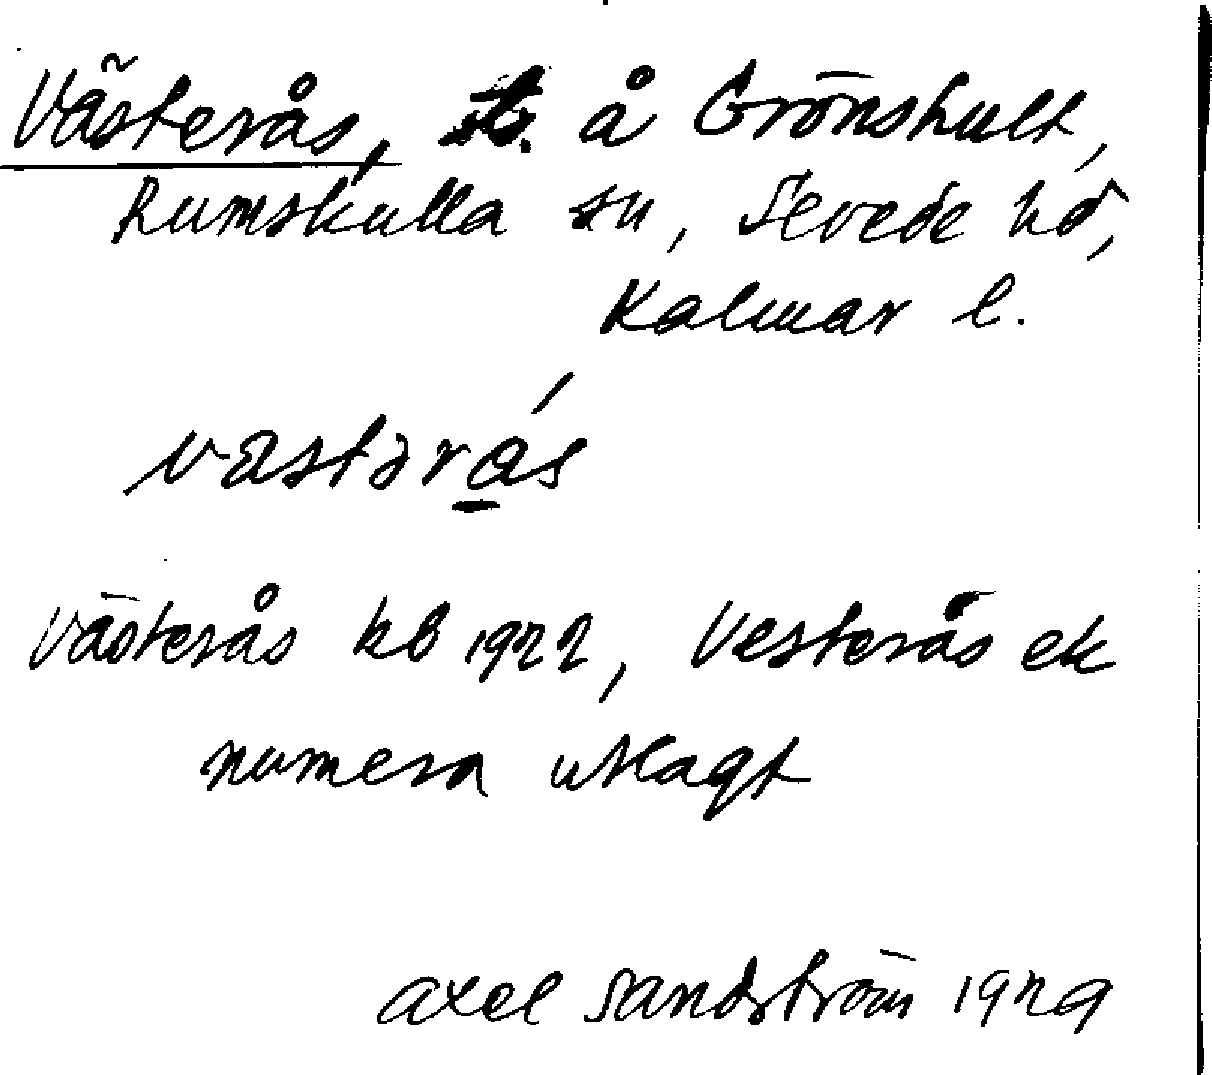 Västerås, t. å Grönshult,
Rumskulla sn, Sevede hd,
Kalmar l.
västərás
Västerås kb 1922, Vesterås ek
numera utlagt
Axel Sandström 1929